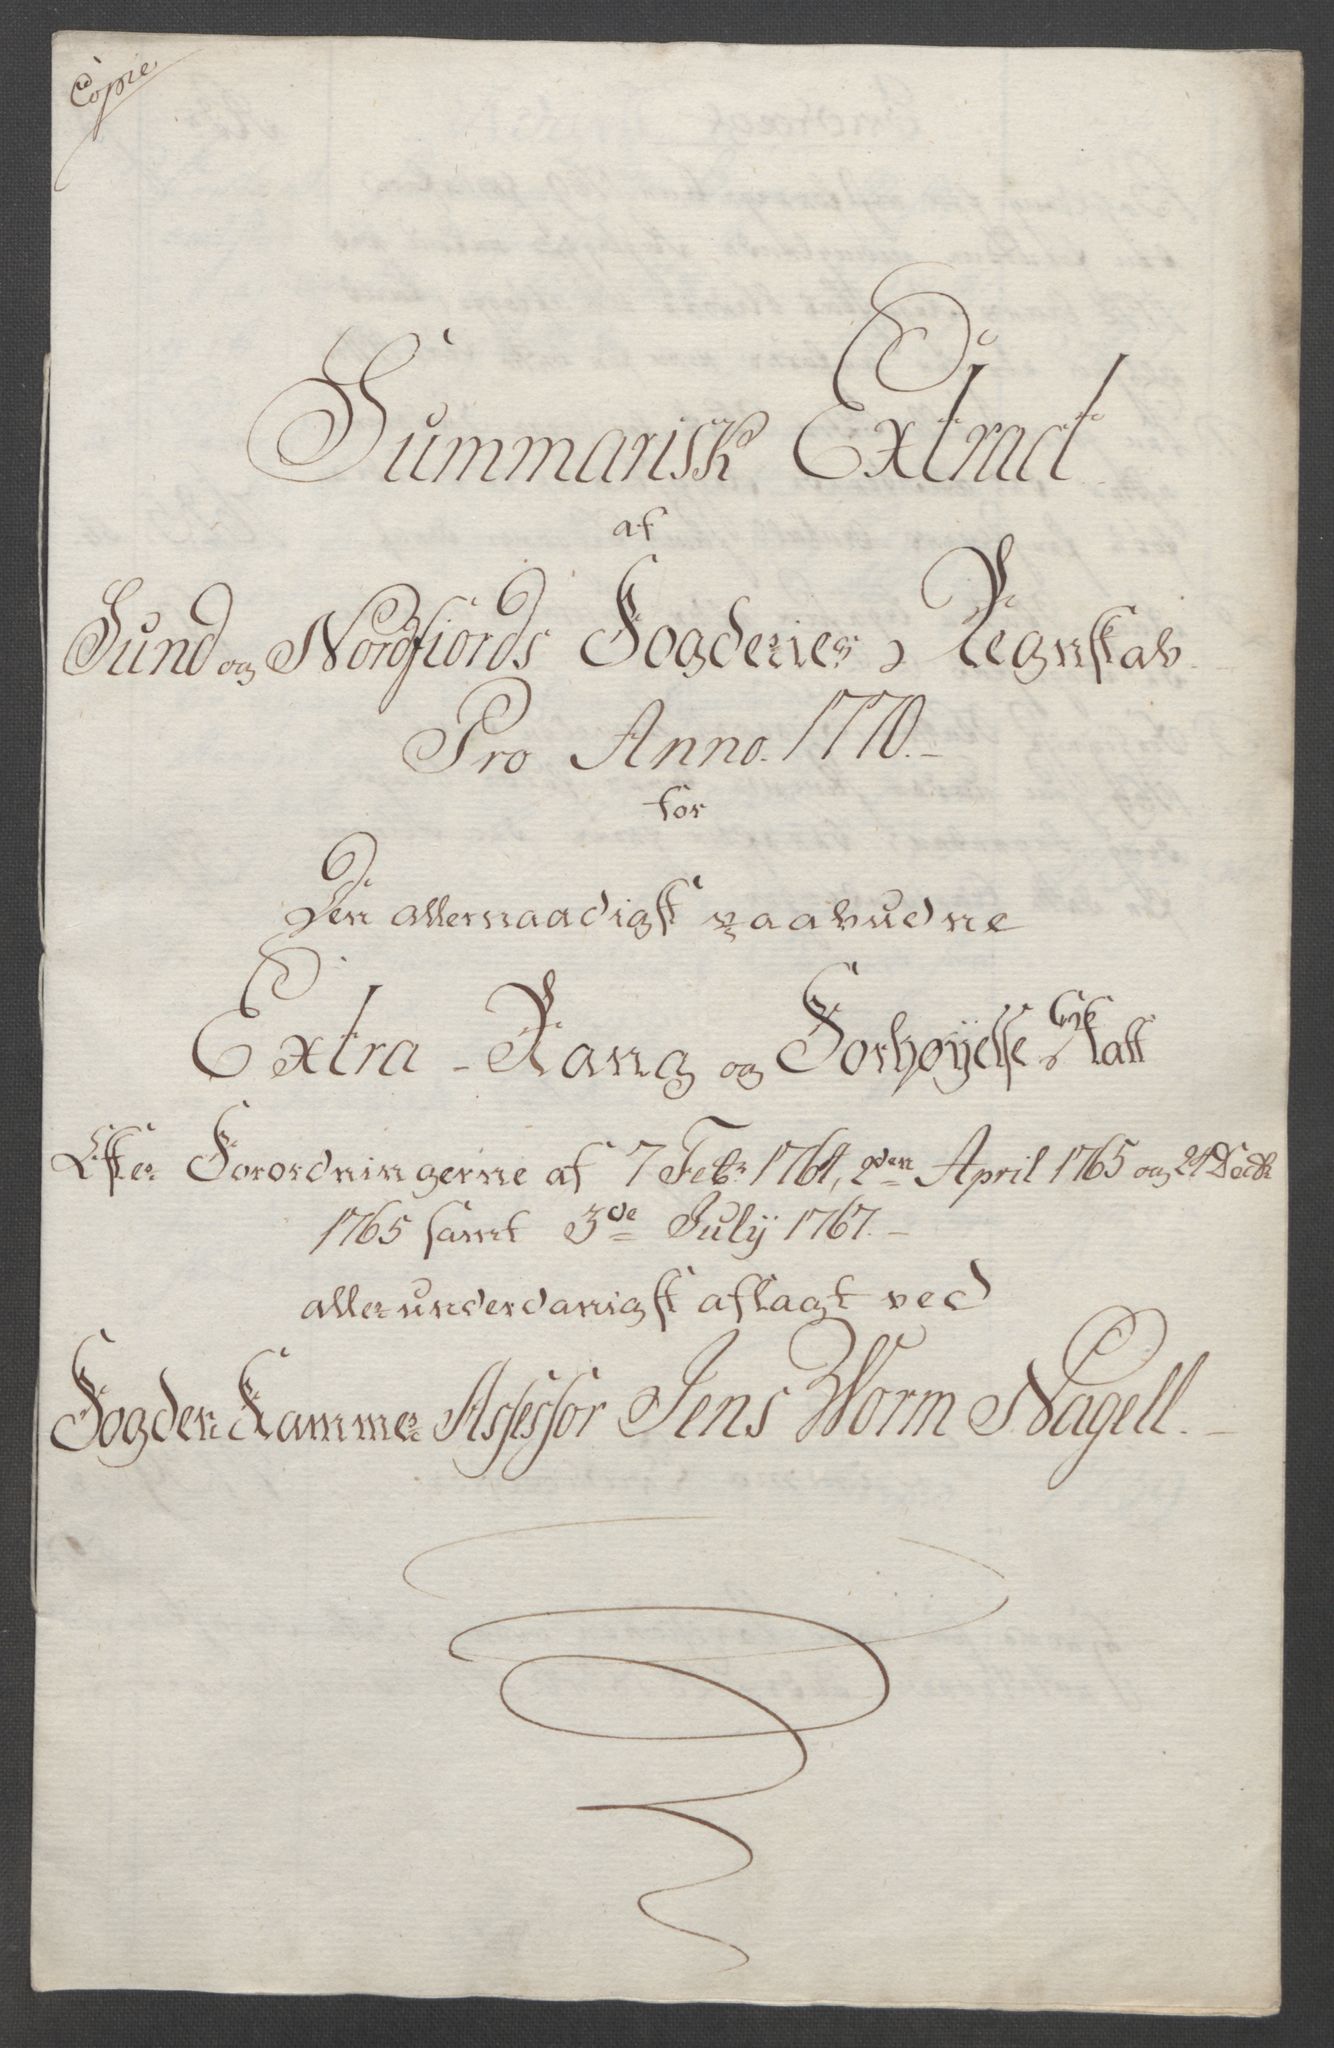 Copie
Summarisk Extract
af
Sund og Nordfiords Fogderies Regnskab
Pro Anno. 1770.
for
Den allernaadigst paabudne
Extra - Rang og Forhøyelse Skatt
Efter Forordningerne af 7 Febr 1764, 2den April 1765 og 24 Decbr
1765 samt 3de Julÿ 1767.
allerunderdanigst aflagt ved
Fogden Kammer Assessor Jens Worm Nagell.